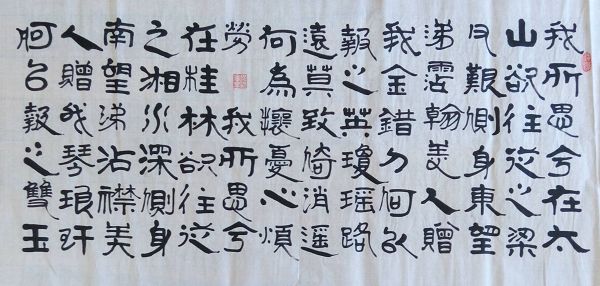 我所思兮在太
山欲往從之梁
父艱側身東望
涕霑翰美人贈
我金錯刀何以
報之英瓊瑤路
遠莫致倚消遙
何為懷憂心煩
勞 我所思兮
在桂林欲往從
之湘水深側身
南望涕沾襟美
人贈我琴琅玕
何以報之雙玉